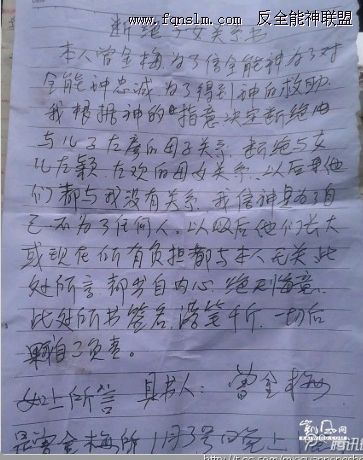 www.fqnslm.com 反全能神联盟
断绝子女关系书
本人曾金梅为了信全能神为了对
全能神忠诚为了得到神的救助
我根据神的指意决定断绝由
与儿子左彦的母子关系,断绝与女
儿左颖、左欢的母女关系,以后
们都与我没有关系,我信神是为了自
己不为了任何人。以及后他们长大
或现在所有负担都与本人无关,此
处所言都出自内心,绝无悔意.
此处所书签名,落笔千斤,一切后
果自己负责。
如上所言 具书人:曾金梅
是曾金梅所 1月3号 晚上
凯风网